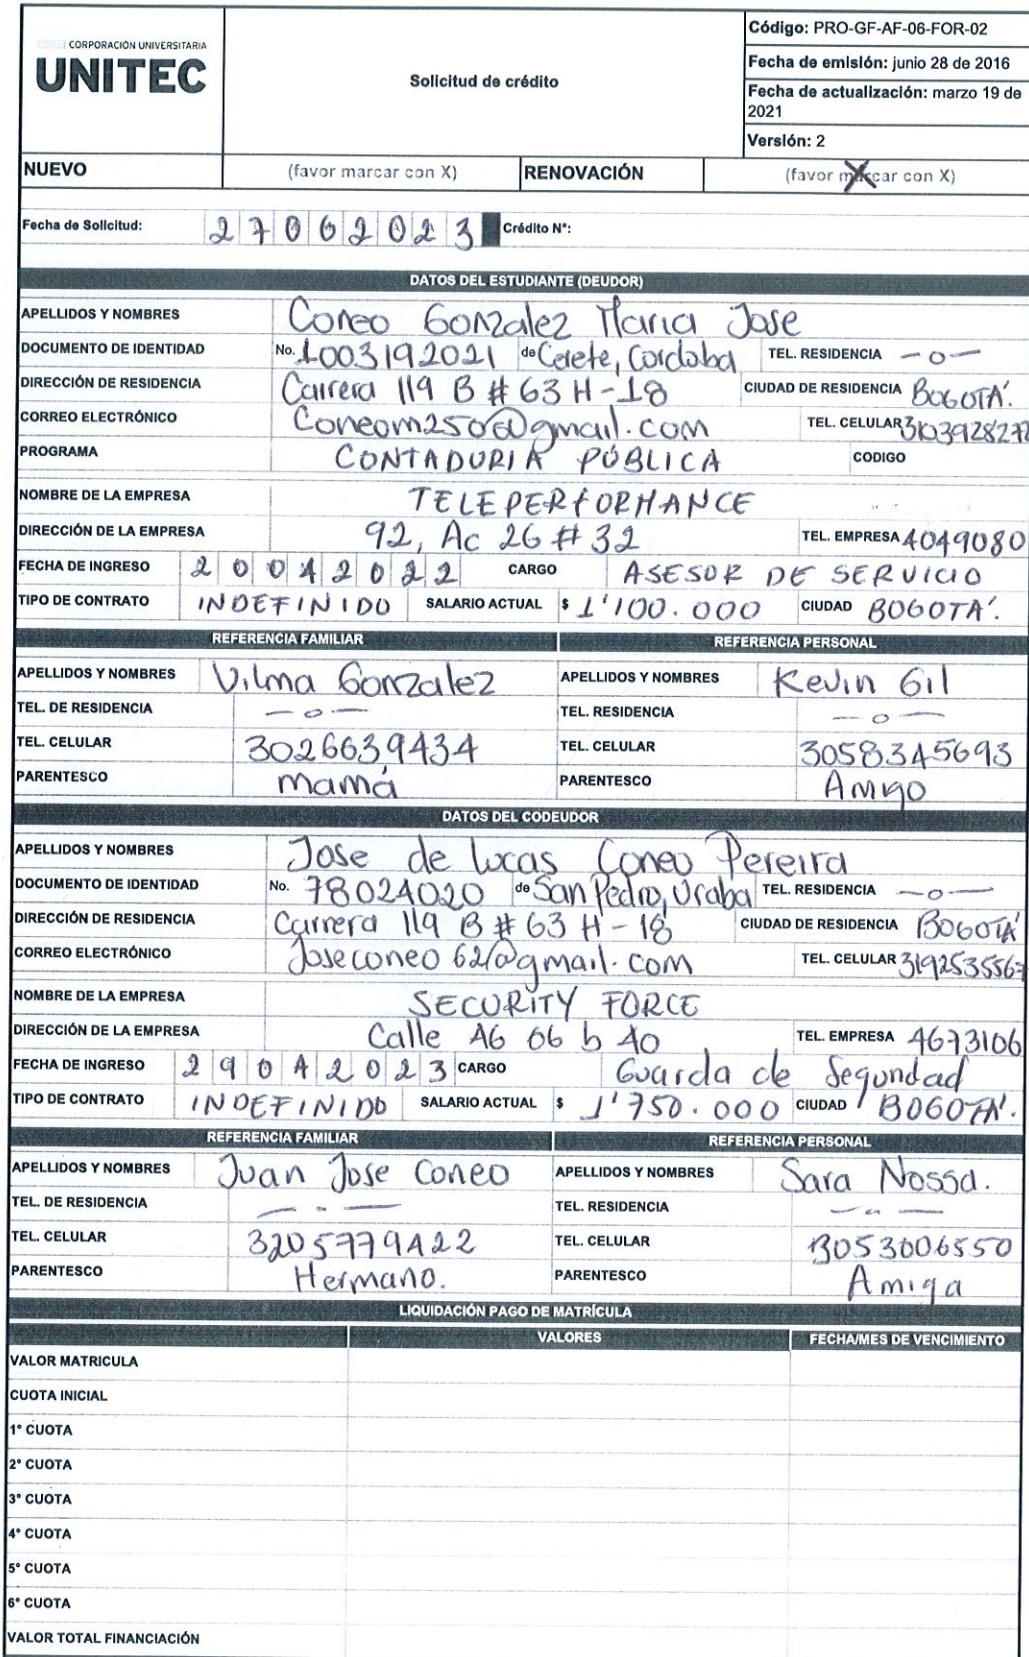 CORPORACIÓN UNIVERSITARIA
UNITEC
Solicitud de crédito
Código: PRO-GF-AF-06-FOR-02
Fecha de emisión: junio 28 de 2016
Fecha de actualización: marzo 19 de 2021
Versión: 2
NUEVO (favor marcar con X) RENOVACIÓN (favor marcar con X) X
Fecha de Solicitud: 27062023 Crédito N°:
DATOS DEL ESTUDIANTE (DEUDOR)
APELLIDOS Y NOMBRES Coneo Gonzalez Maria Jose
DOCUMENTO DE IDENTIDAD No. 1003192021 de Cerete, Cordoba TEL. RESIDENCIA —o—
DIRECCIÓN DE RESIDENCIA Carrera 119 B # 63 H-18 CIUDAD DE RESIDENCIA BOGOTÁ.
CORREO ELECTRÓNICO Coneom250@gmail.com TEL. CELULAR 3103928277
PROGRAMA CONTADURIA PÚBLICA CODIGO
NOMBRE DE LA EMPRESA TELEPERFORMANCE
DIRECCIÓN DE LA EMPRESA 92, Ac 26 # 32 TEL. EMPRESA 4049080
FECHA DE INGRESO 20042022 CARGO ASESOR DE SERVICIO
TIPO DE CONTRATO INDEFINIDO SALARIO ACTUAL $ 1'100.000 CIUDAD BOGOTA'.
REFERENCIA FAMILIAR REFERENCIA PERSONAL
APELLIDOS Y NOMBRES Vilma Gonzalez APELLIDOS Y NOMBRES Kevin Gil
TEL. DE RESIDENCIA —o— TEL. RESIDENCIA —o—
TEL. CELULAR 3026639434 TEL. CELULAR 3058345693
PARENTESCO mamá PARENTESCO Amigo
DATOS DEL CODEUDOR
APELLIDOS Y NOMBRES Jose de lucas Coneo Pereira
DOCUMENTO DE IDENTIDAD No. 78024020 de San Pedro, Uraba TEL. RESIDENCIA —o—
DIRECCIÓN DE RESIDENCIA Carrera 119 B # 63 H-18 CIUDAD DE RESIDENCIA BOGOTÁ
CORREO ELECTRÓNICO Joseconeo62@gmail.com TEL. CELULAR 3192535567
NOMBRE DE LA EMPRESA SECURITY FORCE
DIRECCIÓN DE LA EMPRESA Calle 46 66 b 40 TEL. EMPRESA 4673106
FECHA DE INGRESO 29042023 CARGO Guarda de Seguridad
TIPO DE CONTRATO INDEFINIDO SALARIO ACTUAL $ 1'750.000 CIUDAD BOGOTA'.
REFERENCIA FAMILIAR REFERENCIA PERSONAL
APELLIDOS Y NOMBRES Juan Jose Coneo APELLIDOS Y NOMBRES Sara Nossa.
TEL. DE RESIDENCIA —o— TEL. RESIDENCIA —o—
TEL. CELULAR 3205779422 TEL. CELULAR 3053006550
PARENTESCO Hermano. PARENTESCO Amiga
LIQUIDACIÓN PAGO DE MATRÍCULA
VALORES FECHA/MES DE VENCIMIENTO
VALOR MATRICULA
CUOTA INICIAL
1° CUOTA
2° CUOTA
3° CUOTA
4° CUOTA
5° CUOTA
6° CUOTA
VALOR TOTAL FINANCIACIÓN